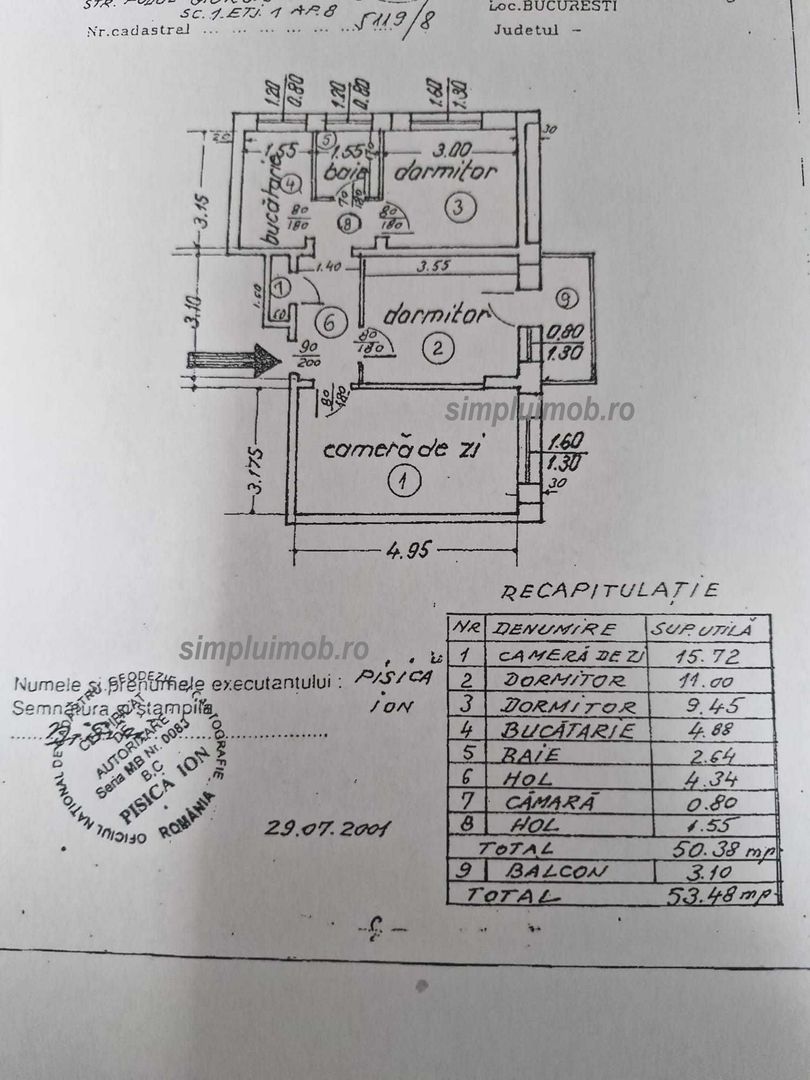 SC.1.ETJ.1 AP.8
Loc.BUCURESTI
Nr.cadastral ... ... ... ... ... 5119/8
Judetul -
1.20 0.80
1.20 0.80
1.60 1.30
20
30
1.55
5
1.55
3.00
bucătarie
4
baie
dormitor
3
70 180
80 180
8
80 180
3.15
1.40
3.55
7
1.60
9
6
dormitor
2
3.10
0.80 1.30
90 200
80 180
80 180
simpluimob.ro
cameră de zi
1
1.60 1.30
30
3.175
4.95
RECAPITULAȚIE
NR DENUMIRE SUP.UTILĂ
1 CAMERĂ DE ZI 15.72
2 DORMITOR 11.00
3 DORMITOR 9.45
4 BUCĂTARIE 4.88
5 BAIE 2.64
6 HOL 4.34
7 CĂMARĂ 0.80
8 HOL 1.55
TOTAL 50.38 mp
9 BALCON 3.10
TOTAL 53.48 mp
simpluimob.ro
Numele si prenumele executantului : PISICA
Semnătura și ștampila ION
AUTORIZARE
Seria MB Nr. 0083
B.C
PISICA ION
ROMÂNIA
OFICIUL NATIONAL DE
29.07.2001